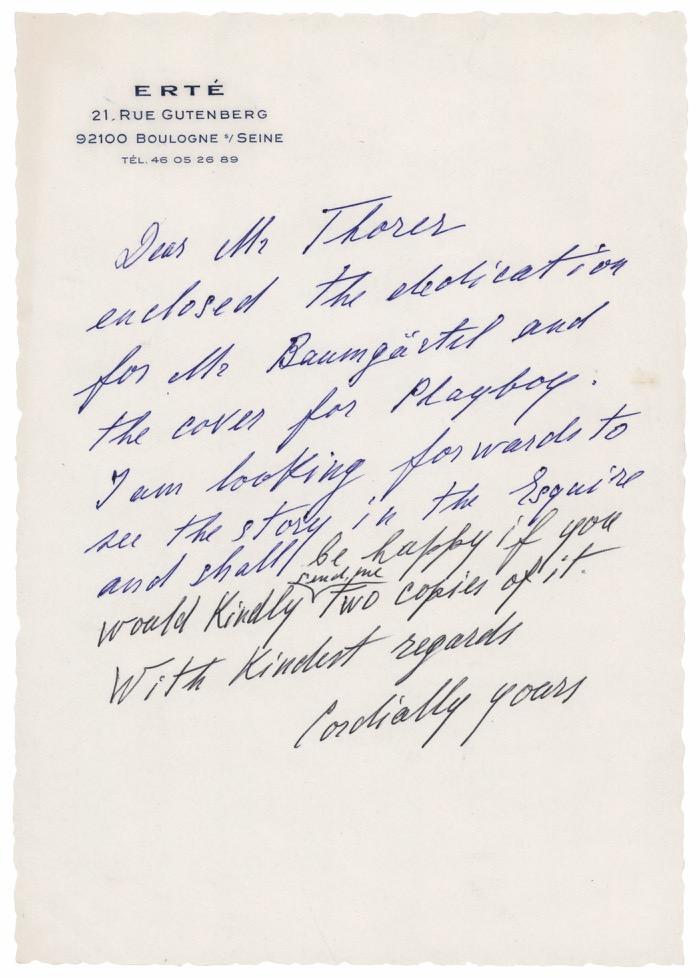 ERTÉ
21, RUE GUTENBERG
92100 BOULOGNE s/ SEINE
TÉL. 46 05 26 89
Dear Mr Thorer
enclosed the dedication
for Mr Baumgärtel and
the cover for Playboy.
I am looking forwards to
see the story in the Esquire
and shall be happy if you
send me
would Kindly two copies of it.
With Kindest regards
Cordially yours